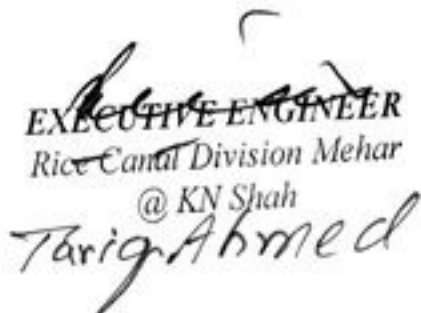 EXECUTIVE ENGINEER
Rice Canal Division Mehar
@ KN Shah
Tariq Ahmed